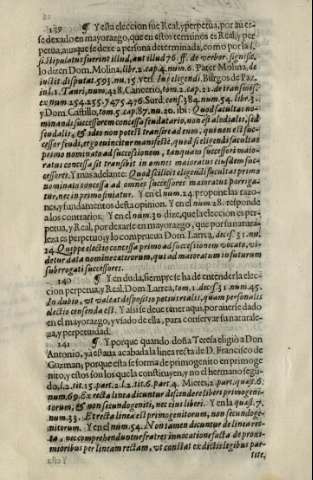 139 ¶ Y esta eleccion fue Real, y perpetua, por auer-
se dexado en mayorazgo, que en estos terminos es Real, y per
petua, aunque se dexe a persona determinada, como por la l.
si stipulatus fuerint illud, aut illud 76. ff. de verbor. signific.
lo dizen Dom. Molina, lib. 2. cap. 4. num. 6. Pater Molina, de
iustit. disputat. 593. nu. 15. vers. Ius eligendi, Burgos de Paz,
in l. 3. Tauri, num. 428. Canceriò, tom. 2. cap. 21. de transact.
ex num 254. 255. 747 & 476. Surd. cons. 384. num. 54. lib. 3.
y Dom. Castillo, tom. 5. cap. 87. nu. 20. ibi: Quod facultas no-
minandi successorem concessa feudatario, non est alicuius, sed
feudalis, & ideò non potest transire ad eum, qui non est suc-
cessor feudi, ergo vincitur manifestè, quod si eligendi facultas
primo nominato ad successionem, tanquam successuri maio-
ratus concessa sit transibit in omnes maioratus eiusdem suc-
cessores. Y mas adelante: Quod si licet eligendi facultas primo
nominato concessa ad omnes successores maioratus porriga-
tur, nec in primo finiatur. Y en el num. 24. propone las razo-
nes, y fundamentos desta opinion. Y en el num. 28. responde
a los contrarios; Y en el num. 30. dize, que la eleccion es per-
petua, y Real, por dexarse en mayorazgo, que por su natura-
leza es perpetuo; y lo comprueua Dom. Larrea, decis. 51. nu.
24. Quippe electio concessa primo ad successionem vocato, vi-
detur data nomine caterorum, qui ad maioratum in futurum
subrogati successores.
140 ¶ Y en duda, siempre se ha de entender la elec-
cion perpetua, y Real, Dom. Larrea, tom. 1. decis. 31. num. 45.
In dubio, vt valeat dispositio potius realis, quam personalis
electio censenda est. Y assi se deue tener aqui, por auerse dado
en el mayorazgo, y vsado de ella, para conseruar su natura-
leza, y perpetuidad.
141 ¶ Y porque quando doña Teresa eligiò a Don
Antonio, ya estaua acabada la linea recta de D. Francisco de
Guzman, porque esta se forma de primogenito en primoge
nito, y estos son los que la constituyen, y no el hermano segu-
do, l. 2. tit. 15. part. 2. l. 2. tit. 6. part. 4. Mieres, 2. part. quæst. 6.
num. 69. Ex recta linea dicuntur descendere liberi primogeni-
torum, & non secundogeniti, nec eius liberi. Y en la quæst. 7.
num. 33. Et recta linea est primogenitorum, non secundoge-
nitorum. Y en el num. 54. Non tamen dicuntur de linea rec-
ta, nec comprehenduntur fratres in vocatione facta de proxi-
mioribus per lineam rectam, vt constat ex dictis legibus par-
titæ,